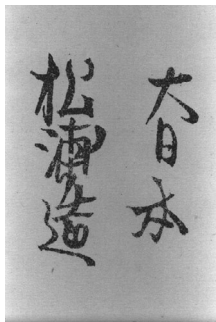 大日本
松浦造